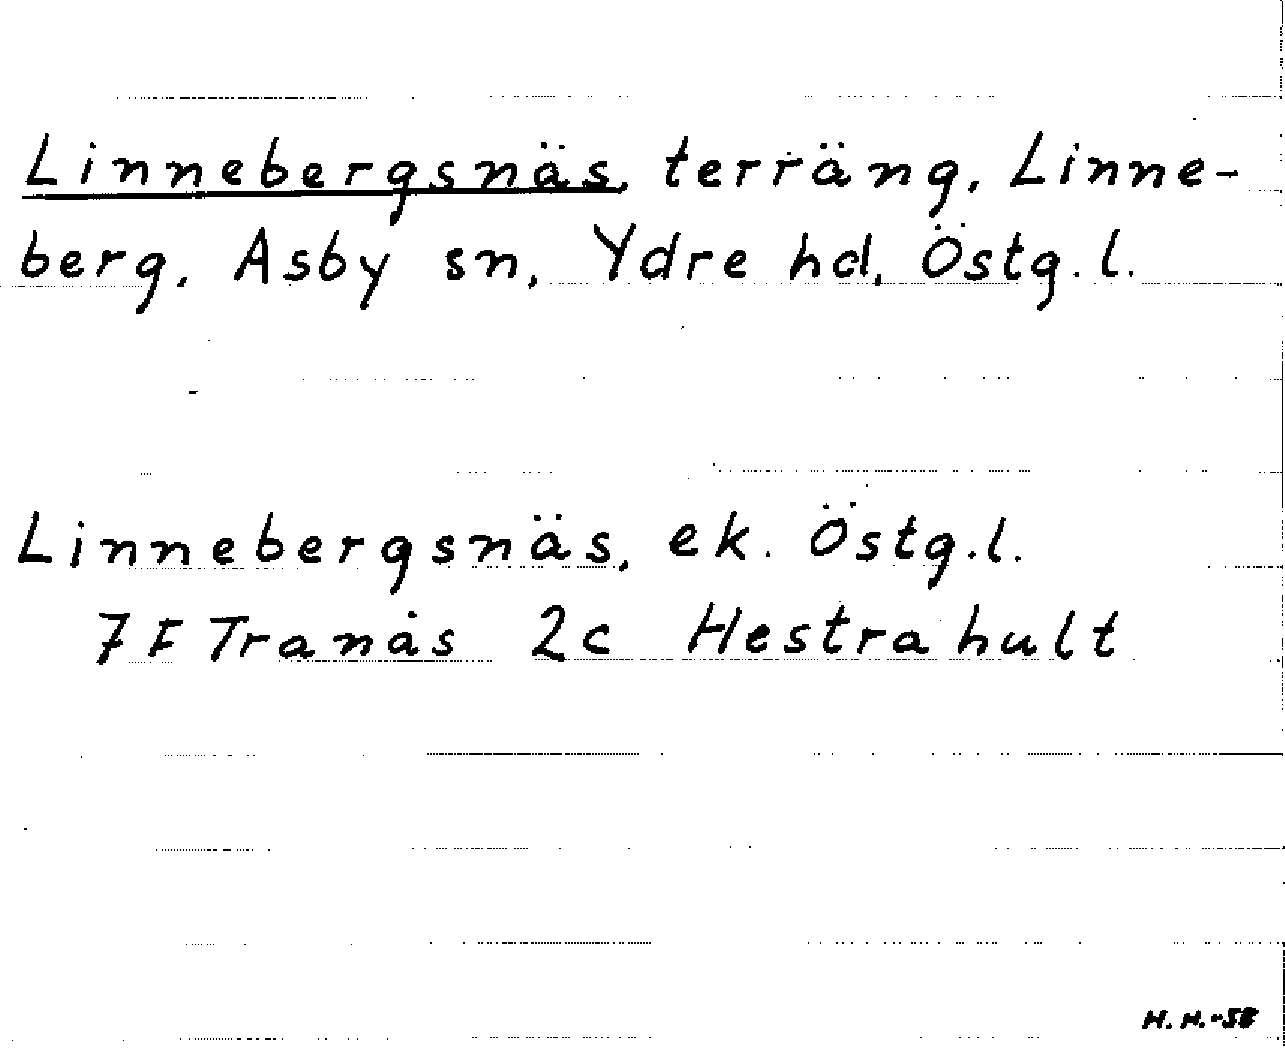 Linnebergsnäs, terräng, Linne-
berg, Asby sn, Ydre hd, Östg.l.
Linnebergsnäs, ek. Östg.l.
7F Tranås 2c Hestrahult
H.H.-58